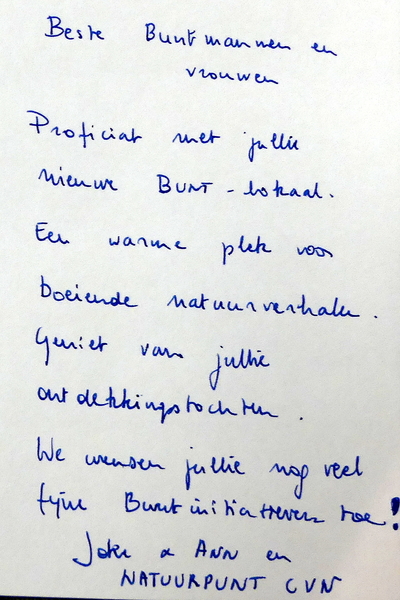 Beste Buntmannen en
vrouwen
Proficiat met jullie
nieuwe BUNT-lokaal.
Een warme plek voor
boeiende natuurverhalen.
Geniet van jullie
ontdekkingstochten.
We wensen jullie nog veel
fijne Buntinitiatieven toe!
Joke & ANN en
NATUURPUNT CVN